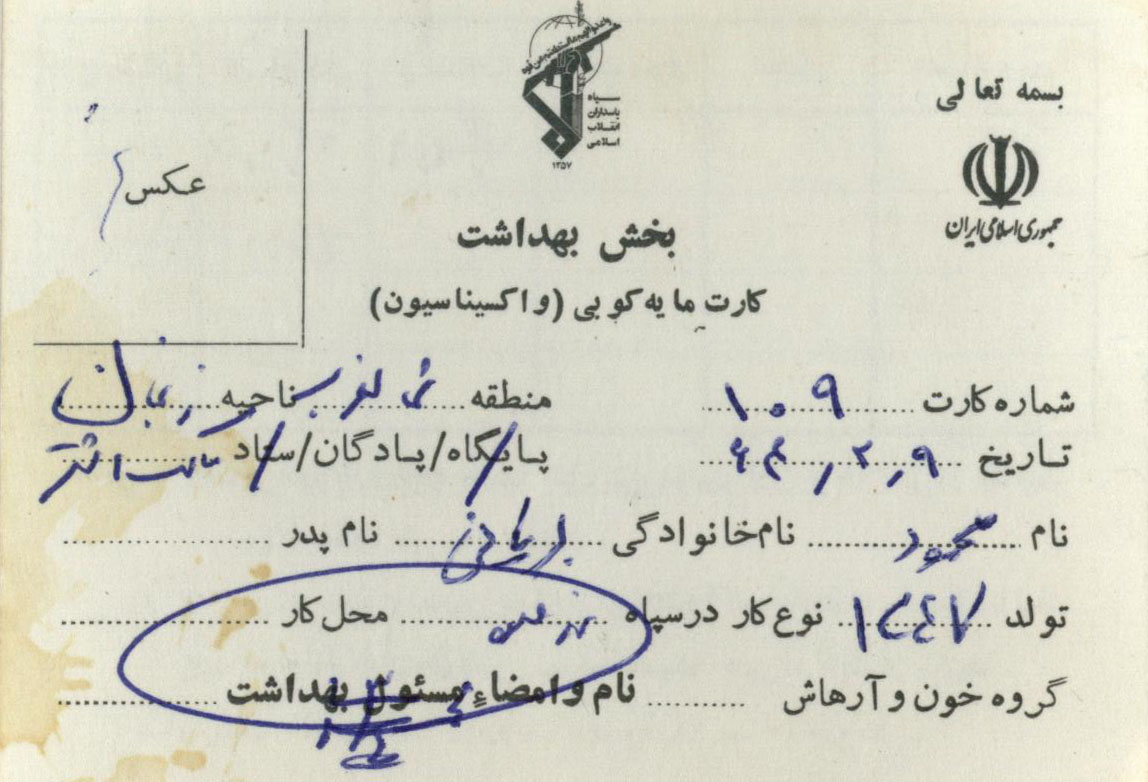 بسمه تعالی
جمهوری اسلامی ایران
سپاه
پاسداران
انقلاب
اسلامی
۱۳۵۷
عکس
بخش بهداشت
کارت مایه کوبی (واکسیناسیون)
شماره کارت ۱۰۹ منطقه ناحیه زنجان
تاریخ ۶۴,۲,۹ پایگاه/پادگان/ستاد
نام محمود نام خانوادگی نام پدر
تولد نوع کار در سپاه محل کار
گروه خون و آرهاش نام و امضاء مسئول بهداشت